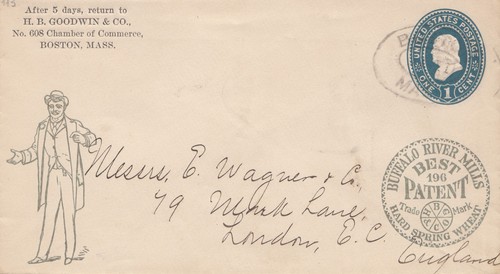 After 5 days, return to
H. B. GOODWIN & CO.,
No. 608 Chamber of Commerce,
BOSTON, MASS.
UNITED STATES POSTAGE
ONE 1 CENT
Messrs. E. Wagner & Co.,
79 Mark Lane,
London, E. C.
England
BUFFALO RIVER MILLS
BEST
196
PATENT
Trade Mark
H B G & CO
HARD SPRING WHEAT